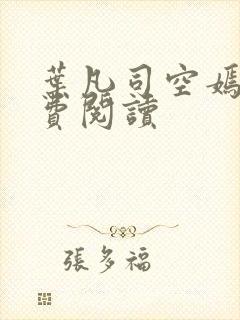 葉凡司空嫣
費閱讀
張多福